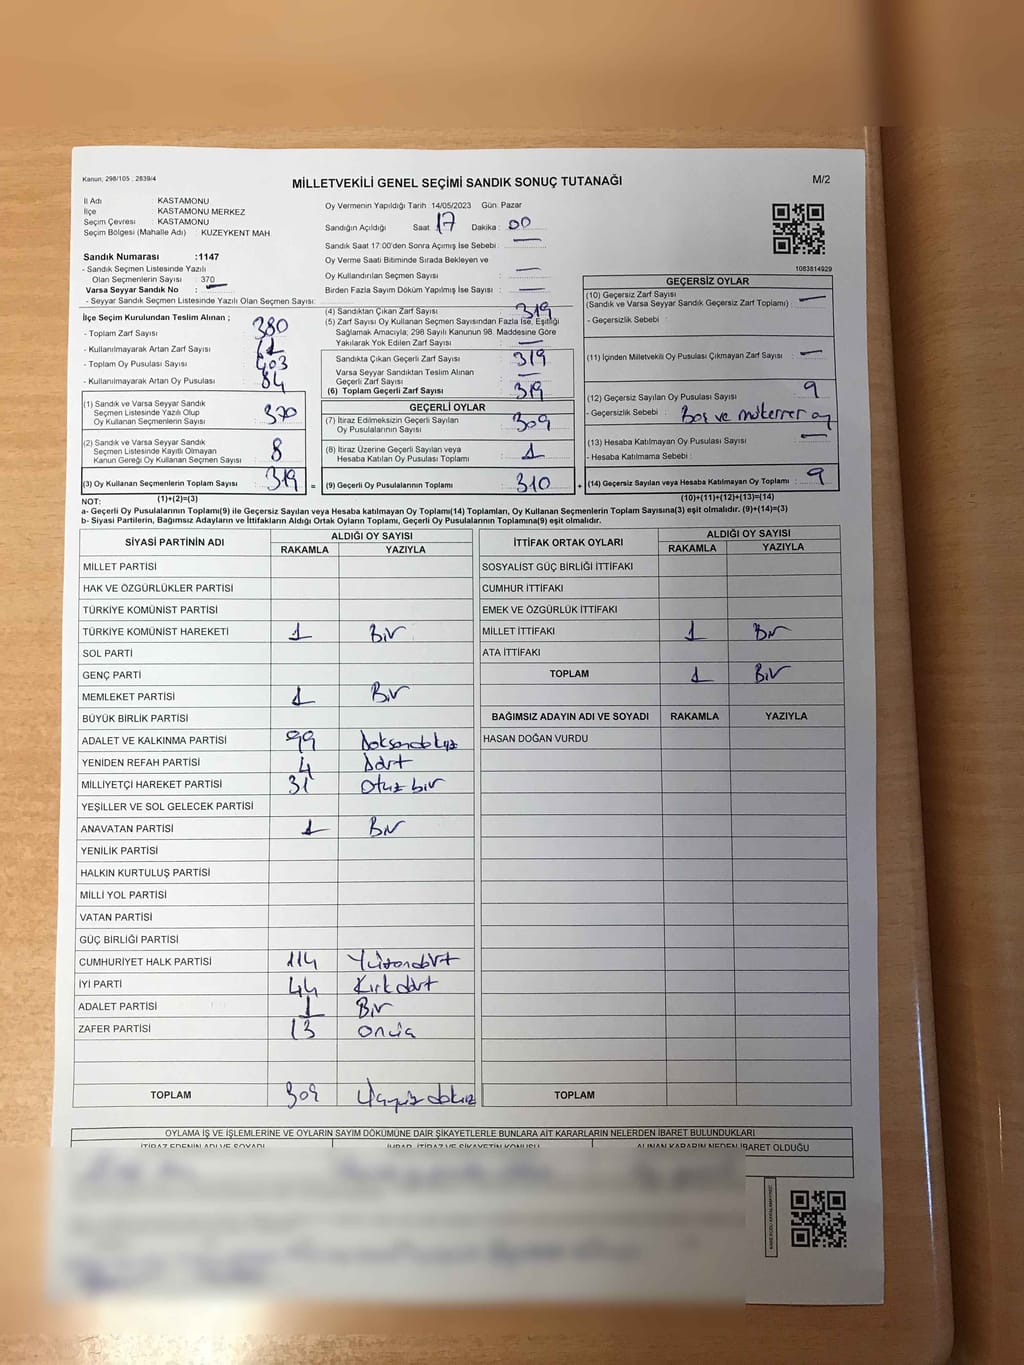 Kanun; 298/105 , 2839/4
MİLLETVEKİLİ GENEL SEÇİMİ SANDIK SONUÇ TUTANAĞI
M/2
İl Adı : KASTAMONU
İlçe : KASTAMONU MERKEZ
Seçim Çevresi : KASTAMONU
Seçim Bölgesi (Mahalle Adı) : KUZEYKENT MAH.
Oy Vermenin Yapıldığı Tarih :14/05/2023 Gün: Pazar
Sandığın Açıldığı Saat: 17 Dakika : 00
Sandık Saat 17:00'den Sonra Açımış İse Sebebi : —
Oy Verme Saati Bitiminde Sırada Bekleyen ve
Oy Kullandırılan Seçmen Sayısı : —
Birden Fazla Sayım Döküm Yapılmış İse Sayısı : —
1083814929
Sandık Numarası :1147
- Sandık Seçmen Listesinde Yazılı
Olan Seçmenlerin Sayısı : 370
Varsa Seyyar Sandık No : —
- Seyyar Sandık Seçmen Listesinde Yazılı Olan Seçmen Sayısı:
İlçe Seçim Kurulundan Teslim Alınan ;
- Toplam Zarf Sayısı : 380
- Kullanılmayarak Artan Zarf Sayısı :
- Toplam Oy Pusulası Sayısı : 403
- Kullanılmayarak Artan Oy Pusulası : 84
(1) Sandık ve Varsa Seyyar Sandık
Seçmen Listesinde Yazılı Olup
Oy Kullanan Seçmenlerin Sayısı : 370
(2) Sandık ve Varsa Seyyar Sandık
Seçmen Listesinde Kayıtlı Olmayan
Kanun Gereği Oy Kullanan Seçmen Sayısı : 8
(3) Oy Kullanan Seçmenlerin Toplam Sayısı : 319
(4) Sandıktan Çıkan Zarf Sayısı : 319
(5) Zarf Sayısı Oy Kullanan Seçmen Sayısından Fazla İse, Eşitliği
Sağlamak Amacıyla; 298 Sayılı Kanunun 98. Maddesine Göre
Yakılarak Yok Edilen Zarf Sayısı : —
Sandıkta Çıkan Geçerli Zarf Sayısı : 319
Varsa Seyyar Sandıktan Teslim Alınan
Geçerli Zarf Sayısı : —
(6) Toplam Geçerli Zarf Sayısı : 319
GEÇERLİ OYLAR
(7) İtiraz Edilmeksizin Geçerli Sayılan
Oy Pusulalarının Sayısı : 309
(8) İtiraz Üzerine Geçerli Sayılan veya
Hesaba Katılan Oy Pusulası Toplamı : 1
= (9) Geçerli Oy Pusulalarının Toplamı : 310
GEÇERSİZ OYLAR
(10) Geçersiz Zarf Sayısı
(Sandık ve Varsa Seyyar Sandık Geçersiz Zarf Toplamı) : —
- Geçersizlik Sebebi :
(11) İçinden Milletvekili Oy Pusulası Çıkmayan Zarf Sayısı : —
(12) Geçersiz Sayılan Oy Pusulası Sayısı : 9
- Geçersizlik Sebebi : Boş ve mükerrer oy
(13) Hesaba Katılmayan Oy Pusulası Sayısı : —
- Hesaba Katılmama Sebebi :
+ (14) Geçersiz Sayılan veya Hesaba Katılmayan Oy Toplamı : 9
NOT: (1)+(2)=(3) (10)+(11)+(12)+(13)=(14)
a- Geçerli Oy Pusulalarının Toplamı(9) ile Geçersiz Sayılan veya Hesaba katılmayan Oy Toplamı(14) Toplamları, Oy Kullanan Seçmenlerin Toplam Sayısına(3) eşit olmalıdır. (9)+(14)=(3)
b- Siyasi Partilerin, Bağımsız Adayların ve İttifakların Aldığı Ortak Oyların Toplamı, Geçerli Oy Pusulalarının Toplamına(9) eşit olmalıdır.
SİYASİ PARTİNİN ADI ALDIĞI OY SAYISI
RAKAMLA YAZIYLA
MİLLET PARTİSİ
HAK VE ÖZGÜRLÜKLER PARTİSİ
TÜRKİYE KOMÜNİST PARTİSİ
TÜRKİYE KOMÜNİST HAREKETİ 1 Bir
SOL PARTİ
GENÇ PARTİ
MEMLEKET PARTİSİ 1 Bir
BÜYÜK BİRLİK PARTİSİ
ADALET VE KALKINMA PARTİSİ 99 Doksandokuz
YENİDEN REFAH PARTİSİ 4 Dört
MİLLİYETÇİ HAREKET PARTİSİ 31 Otuz bir
YEŞİLLER VE SOL GELECEK PARTİSİ
ANAVATAN PARTİSİ 1 Bir
YENİLİK PARTİSİ
HALKIN KURTULUŞ PARTİSİ
MİLLİ YOL PARTİSİ
VATAN PARTİSİ
GÜÇ BİRLİĞİ PARTİSİ
CUMHURİYET HALK PARTİSİ 114 Yüzondört
İYİ PARTİ 44 Kırkdört
ADALET PARTİSİ 1 Bir
ZAFER PARTİSİ 13 Onüç
TOPLAM 309 Üçyüz dokuz
İTTİFAK ORTAK OYLARI ALDIĞI OY SAYISI
RAKAMLA YAZIYLA
SOSYALİST GÜÇ BİRLİĞİ İTTİFAKI
CUMHUR İTTİFAKI
EMEK VE ÖZGÜRLÜK İTTİFAKI
MİLLET İTTİFAKI 1 Bir
ATA İTTİFAKI
TOPLAM 1 Bir
BAĞIMSIZ ADAYIN ADI VE SOYADI RAKAMLA YAZIYLA
HASAN DOĞAN VURDU
TOPLAM
OYLAMA İŞ VE İŞLEMLERİNE VE OYLARIN SAYIM DÖKÜMÜNE DAİR ŞİKAYETLERLE BUNLARA AİT KARARLARIN NELERDEN İBARET BULUNDUKLARI
İTİRAZ EDENİN ADI VE SOYADI İHBAR, İTİRAZ VE ŞİKAYETİN KONUSU ALINAN KARARIN NEDEN İBARET OLDUĞU